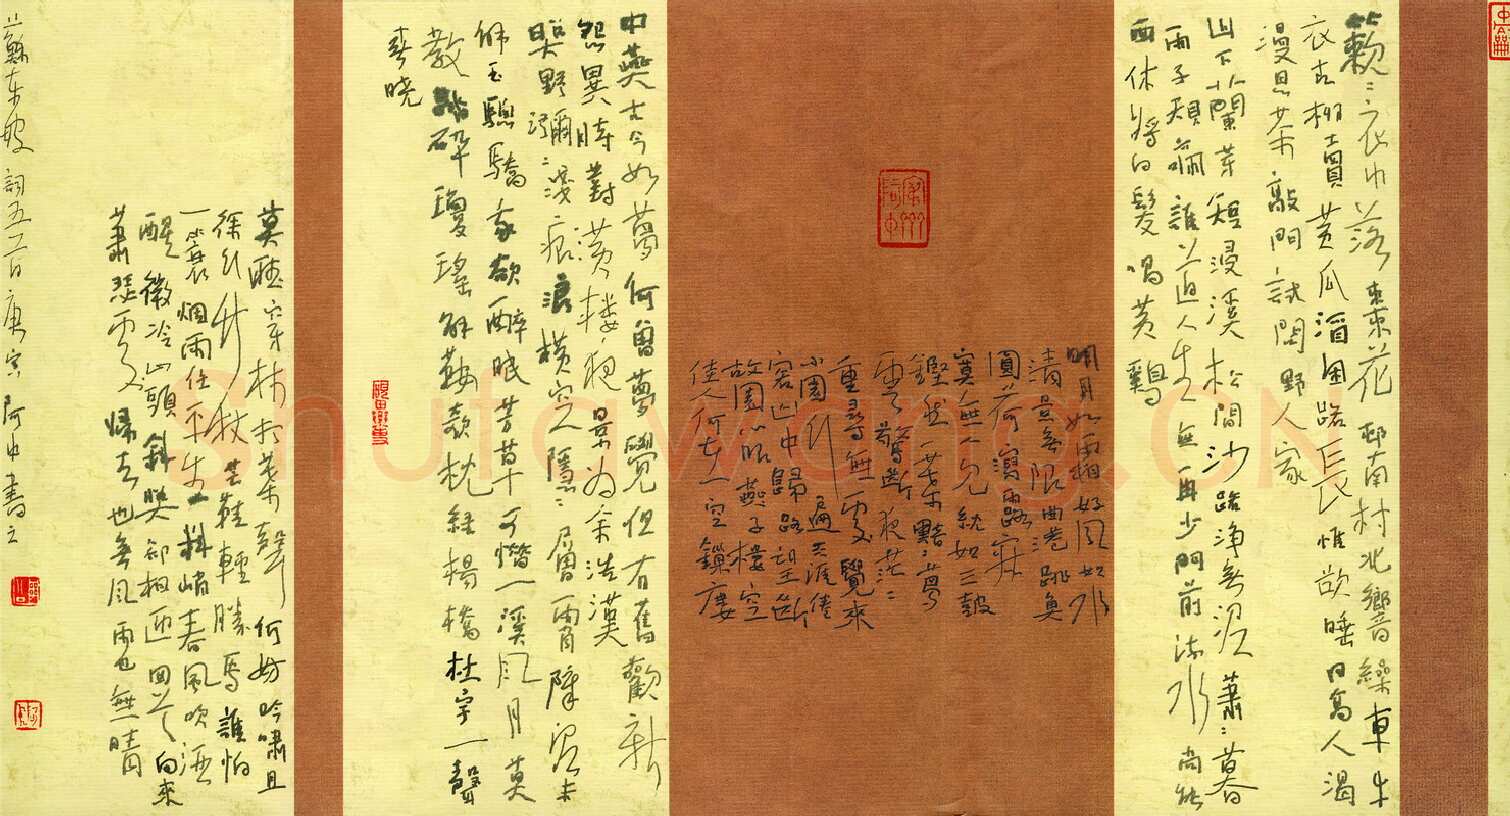 簌〻衣巾落棗花邨南村北響繰車牛
衣古柳賣黃瓜酒困路長惟欲睡日高人渴
漫思茶敲門試問野人家
山下蘭芽短浸溪松間沙路淨無泥蕭〻暮
雨子規啼誰道人生無再少門前流水尚能
西休將白髮唱黃鷄
明月如霜好風如水
清景無限曲港跳魚
圓荷瀉露寂
寞無人見紞如三鼓
鏗然一葉黯〻夢
雲驚斷夜茫〻
重尋無處覺來
小園行遍天涯倦
客山中歸路望斷
故園心眼燕子樓空
佳人何在空鎖樓
中燕古今如夢何曾夢覺但有舊歡新
怨異時對黃樓夜景為余浩漢
照野瀰〻淺痕浪橫空隱〻層霄障泥未
解玉驄驕我欲醉眠芳草可惜一溪風月莫
教踏碎瓊瑤解鞍欹枕綠楊橋杜宇一聲
春曉
莫聽穿林打葉聲何妨吟嘯且
徐行竹杖芒鞋輕勝馬誰怕
一蓑烟雨任平生料峭春風吹酒
醒微冷山頭斜照卻相迎回首向來
蕭瑟處歸去也無風雨也無晴
蘇東坡詞五首庚寅阿中書之
Shufawang.CN